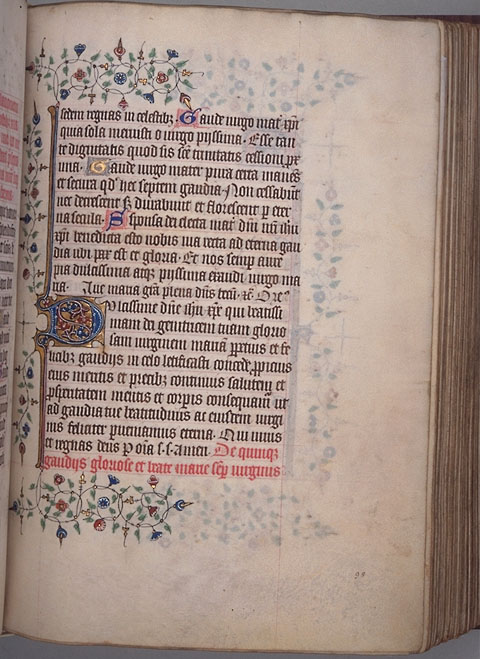 sedem regnas in celestibz Gaude virgo mat' xpi
quia sola meruisti o virgo pyssima Esse tan
te dignitatis quod sis sce trinitatis cessioni prx
ima Gaude virgo mater pura certa manes
et secura qd' hec septem gaudia Non cessabunt
nec decrescent sz durabunt et florescent p eter
na secula Sponsa dei electa mat' dni nri ihu
xpi benedicta esto nobis via recta ad eterna gau
dia ubi pax est et gloria Et nos semp aure
pia dulcissima atqz pyssima exaudi virgo ma
ria Aue maria gra plena dns tecu rc Ore
Dulcissime dne ihu xpe qui beatissi
mam dei genitricem tuam glorio
sam virginem mariam perpetuis et se
uabz gaudijs in celo letificasti concede ppicius
eius meritis et precibz continuis salutem et
psperitatem mentis et corpis consequamur ut
ad gaudia tue beatitudinis ac eiusdem virgi
nis feliciter pueniamus eterna Qui viuis
et regnas deus P oia s s Amen De quinqz
gaudijs gloriose et beate marie semp virginis
99